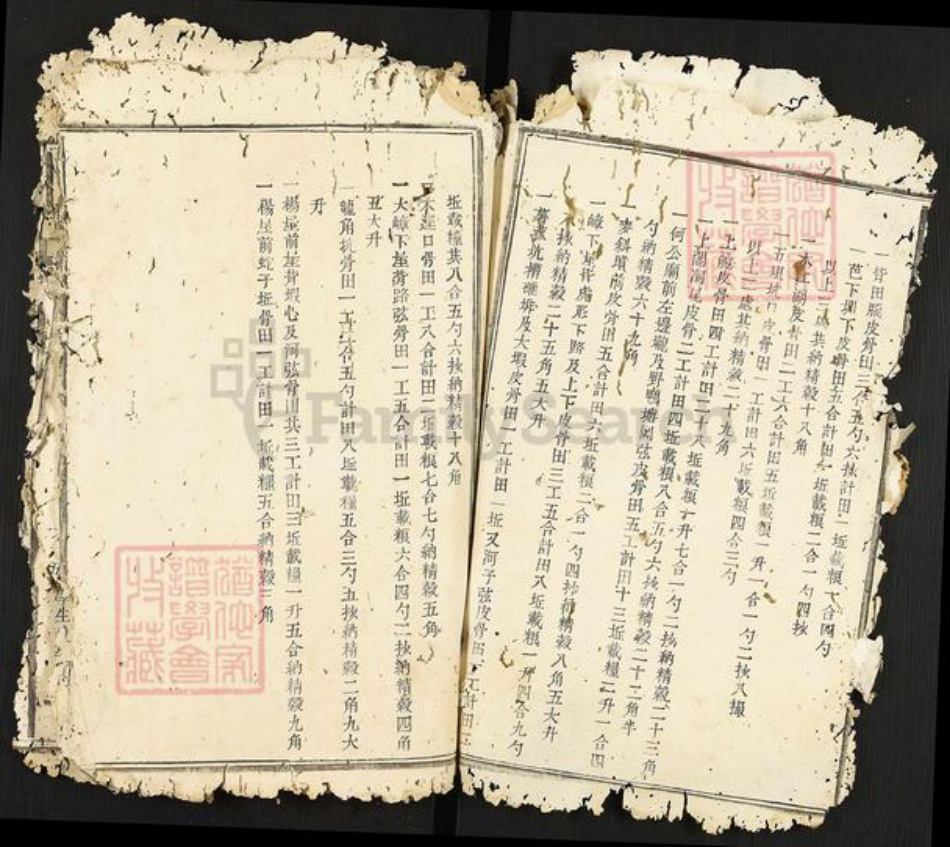 一 田 皮骨田三合五勺六抄計田一坵載粮 合四勺
一芭下壠下皮骨田五合計田一坵載粮二合一勺四抄
以上二處共納精穀十八角
一木江湖皮骨田二工六合計田五坵載粮一升一合一勺二抄八撮
一五里坑口皮骨田一工計田六坵載粮四合三勺
以上二處共納精穀二十九角
一上 皮骨田四工計田二十八坵載粮一升七合一勺二抄納精穀二十三角
一上 皮骨二工計田四坵載粮八合五勺六抄納精穀二十二角半
一何公廟前左邊壠及野鴨塘 弦皮骨田五工計田十三坵載糧二升一合四
勺納精穀六十九角
一麥斜墳前皮骨田五合計田六坵載粮二合一勺四抄納精穀八角五大升
一嶂下 背虎形下路及上下皮骨田三工五合計田八坵載粮一升四合九勺
八抄納精穀二十五角五大升
一 坑槽 坵及大塅皮骨田一工計田一坵又河子弦皮骨田 工計田一
坵載糧共八合五勺六抄納精穀十八角
一 口骨田一工八合計田二坵載粮七合七勺納精穀五角
一大嶂下坵背路弦骨田一工五合計田一坵載粮六合四勺二抄納精穀四角
五大升
一 角坑骨田一工二合五勺計田八坵載糧五合三勺五抄納精穀二角九大
升
一楊屋前坵背塅心及河弦骨田共三工計田三坵載糧一升五合納精穀九角
一楊屋前蛇子坵骨田一工計田一坵載糧五合納精穀三角
FamilySearch
家
譜學會
收藏